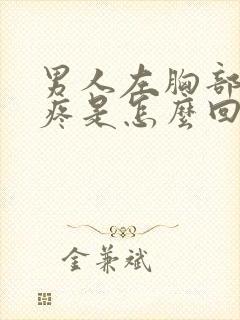 男人左胸部
疼是怎麼回
金兼斌